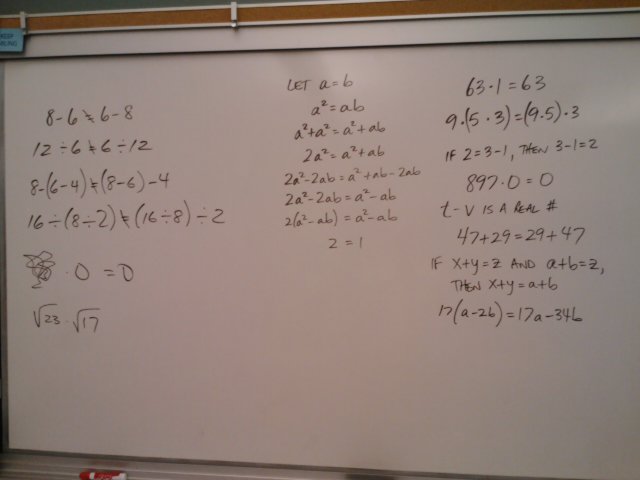 KEEP
8-6≠6-8
12÷6≠6÷12
8-(6-4)≠(8-6)-4
16÷(8÷2)≠(16÷8)÷2
·0=0
√23·√17
LET a=b
a²=ab
a²+a²=a²+ab
2a²=a²+ab
2a²-2ab=a²+ab-2ab
2a²-2ab=a²-ab
2(a²-ab)=a²-ab
2=1
63·1=63
9·(5·3)=(9·5)·3
IF 2=3-1, THEN 3-1=2
897·0=0
t-v IS A REAL #
47+29=29+47
IF x+y=z AND a+b=z,
THEN x+y=a+b
17(a-2b)=17a-34b